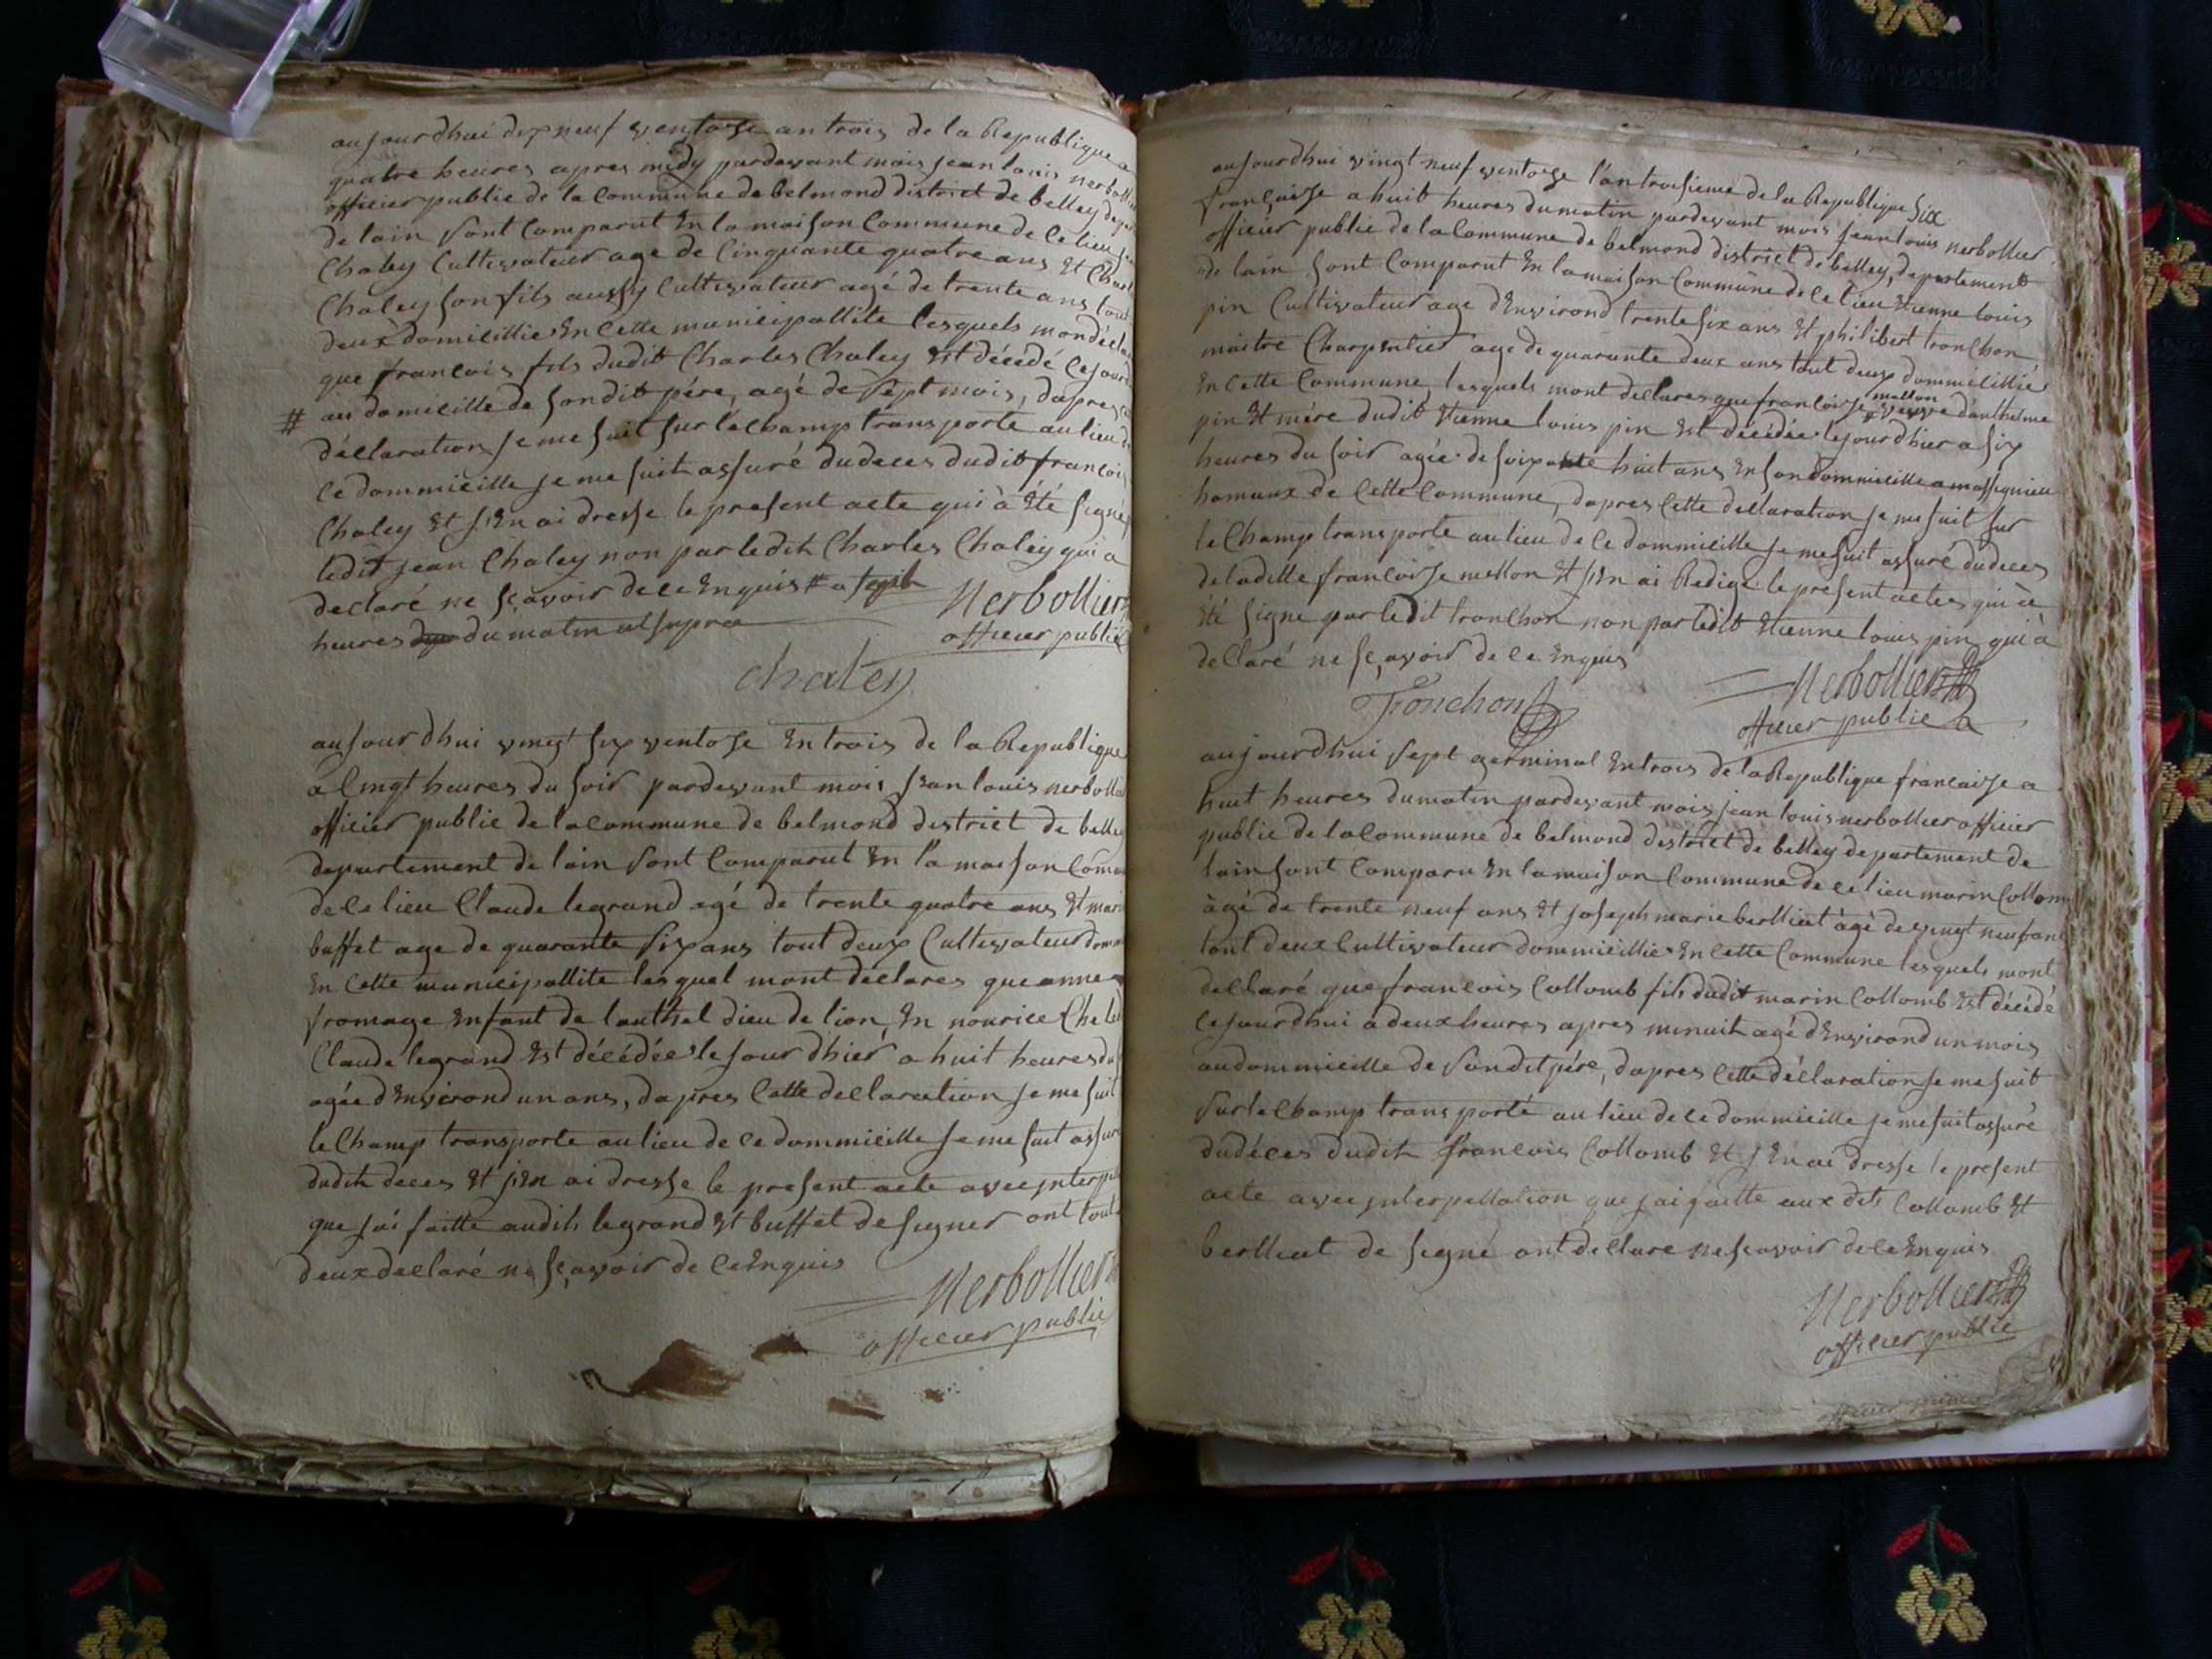 aujourdhui dix neuf ventose an trois de la Republique a
quatre heures apres midy pardevant mois jean louis nerbollier
officier public de la Commune de belmond district de belley
de lain sont Comparut En la maison Commune de Ce lieu
Chaley Cultivateur age de Cinquante quatre ans Et
Chaley son fils aussy Cultivateur agé de trente ans tout
deux domicillies En Cette municipallité lesquels mon
que francois fils dudit Charles Chaley Est décedé
# au domicille de son dit pére, agé de sept mois, dapres
déclaration je me suit sur le Champ transporte au lieu
Ce dommicille je me suit assuré du deces dudit francois
Chaley Et j'En ai dresse le present acte qui à été signé
ledit jean Chaley non par ledit Charles Chaley qui a
declaré ne sçavoir de ce Enquis # a sept
heures du matin ut supra
Nerbollier
officier public
chaley
aujourdhui vingt six ventose En trois de la Republique
a Cinqt heures du soir pardevant mois jean louis
officier public de la Commune de belmond destrict de belley
departement de lain sont Comparut En la maison
de Ce lieu Claude legrand agé de trente quatre ans Et
buffet age de quarante six ans tout deux Cultivateur
En Cette municipallite lesquel mont déclares que anne
fromage Enfant de lauthel dieu de lion, En nourice
Claude legrand Est décédée le jour dhier a huit heures
agée dEnvirond un ans, dapres Cette declaration je me suit
le Champ transporte au lieu de Ce dommicille je me suit
dudit deces Et jEn ai dresse le present acte avec
que jai faitte audits legrand Et buffet de signer ont
deux declaré ne sçavoir de Ce Enquis
Nerbollier
officier public
aujourdhui vingt neuf ventose l'an troisieme de la Republique
francaise a huit heures du matin pardevant mois jean louis nerbollier
officier public de la Commune de belmond district de belley, departement
de lain sont Comparut En la maison Commune de Ce lieu Etienne louis
pin Cultivateur age dEnvirond trente six ans Et philibert tronchon
maitre Charpentier age de quarante deux ans tout deux dommicillié
En Cette Commune, lesquels mont declares que francoise mellon veuve danthelme
pin Et mére dudit Etienne louis pin Est décédée le jour dhier a six
heures du soir agée de soixante huit ans En son dommicille a massignieu
hamaux de Cette Commune, dapres Cette declaration je me suit sur
le Champ transporte au lieu de Ce dommicille je me suit assuré du deces
de ladille francoise mellon Et jEn ai Redigé le present acte qui à
été signe par ledit tronchon non par ledit Etienne louis pin qui à
declaré ne sçavoir de Ce Enquis
Nerbollier
officier public
Tronchon
aujourdhui sept germinal En trois de la Republique francaise a
huit heures du matin pardevant mois jean louis nerbollier officier
public de la Commune de belmond destrict de belley departement de
lain sont Comparu En la maison Commune de Ce lieu marin Collomb
àgé de trente neuf ans Et joseph marie berlliat àgé de vingt neuf ans
tout deux Cultivateur dommicillies En Cette Commune lesquels mont
declaré que francois Collomb fils dudit marin Collomb Est décédé
Cejourdhui a deux heures apres minuit agé dEnvirond un mois
au dommicille de son dit pére, dapres Cette déclaration je me suit
sur le Champ transporté au lieu de Ce dommicille je me suit assuré
du déces dudit francois Collomb Et jEn ai dresse le present
acte avec jnterpellation que jai faitte aux dits Collomb Et
berlliat de signé ont declare ne sçavoir de Ce Enquis
Nerbollier
officier public